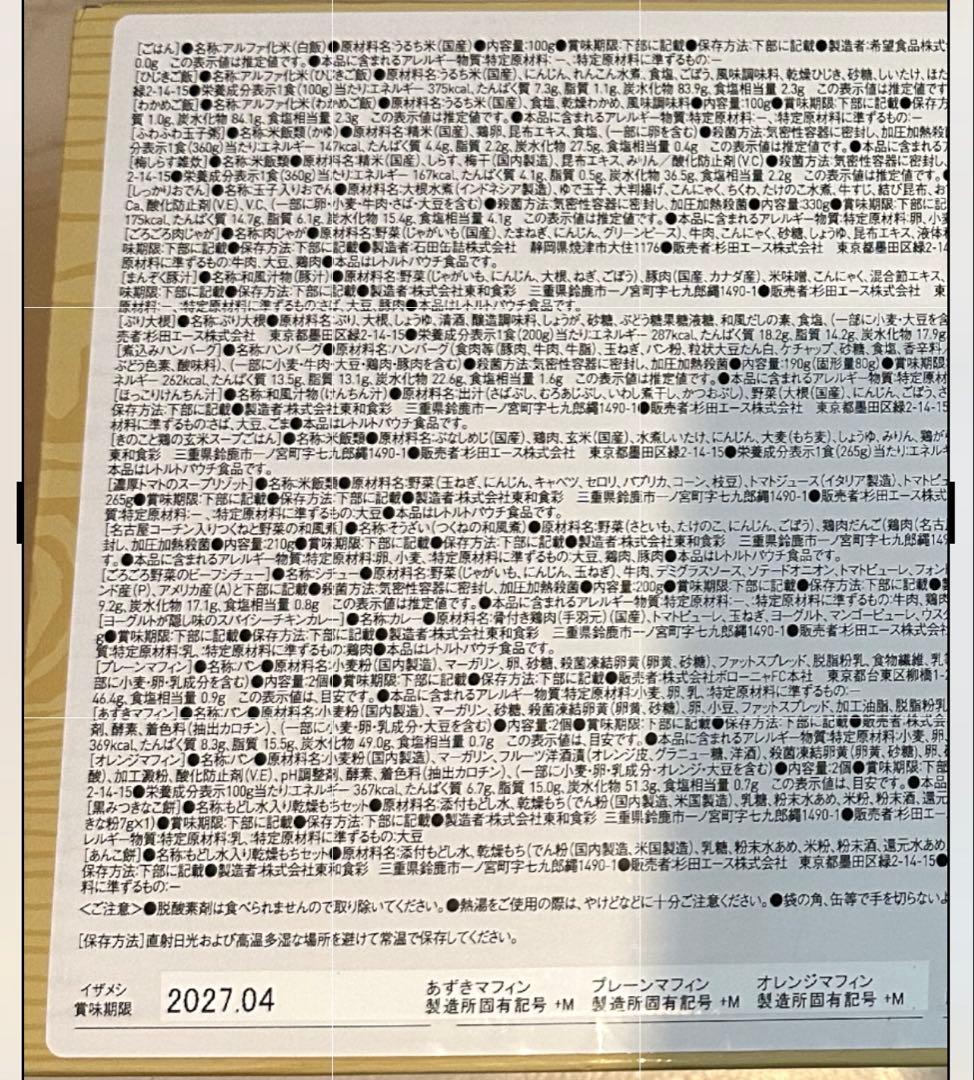 [ごはん]●名称:アルファ化米(白飯)●原材料名:うるち米(国産)●内容量:100g●賞味期限:下部に記載●保存方法:下部に記載●製造者:希望食品株式
0.0g この表示値は推定値です。●本品に含まれるアレルギー物質:特定原材料:ー、:特定原材料に準ずるもの:ー
[ひじきご飯]●名称:アルファ化米(ひじきご飯)●原材料名:うるち米(国産)、にんじん、れんこん水煮、食塩、ごぼう、風味調味料、乾燥ひじき、砂糖、しいたけ、ほた
緑2-14-15●栄養成分表示1食(100g)当たり:エネルギー 375kcal、たんぱく質 7.3g、脂質 1.1g、炭水化物 83.9g、食塩相当量 2.3g この表示値は推定値です
[わかめご飯]●名称:アルファ化米(わかめご飯)●原材料名:うるち米(国産)、食塩、乾燥わかめ、風味調味料●内容量:100g●賞味期限:下部に記載●保存方
質 1.0g、炭水化物 84.1g、食塩相当量 2.3g この表示値は推定値です。●本品に含まれるアレルギー物質:特定原材料:ー、:特定原材料に準ずるもの:ー
[ふわふわ玉子粥]●名称:米飯類(かゆ)●原材料名:精米(国産)、鶏卵、昆布エキス、食塩、(一部に卵を含む)●殺菌方法:気密性容器に密封し、加圧加熱殺
分表示1食(360g)当たり:エネルギー 147kcal、たんぱく質 4.4g、脂質 2.2g、炭水化物 27.5g、食塩相当量 0.4g この表示値は推定値です。●本品に含まれる
[梅しらす雑炊]●名称:米飯類●原材料名:精米(国産)、しらす、梅干(国内製造)、昆布エキス、みりん/酸化防止剤(V.C)●殺菌方法:気密性容器に密封し、
2-14-15●栄養成分表示1食(360g)当たり:エネルギー 167kcal、たんぱく質 4.1g、脂質 0.5g、炭水化物 36.5g、食塩相当量 2.2g この表示値は推定値です。
[しっかりおでん]●名称:玉子入りおでん●原材料名:大根水煮(インドネシア製造)、ゆで玉子、大判揚げ、こんにゃく、ちくわ、たけのこ水煮、牛すじ、結び昆布、お
Ca、酸化防止剤(V.E)、V.C、(一部に卵・小麦・牛肉・さば・大豆を含む)●殺菌方法:気密性容器に密封し、加圧加熱殺菌●内容量:330g●賞味期限:下部に記
175kcal、たんぱく質 14.7g、脂質 6.1g、炭水化物 15.4g、食塩相当量 4.1g この表示値は推定値です。●本品に含まれるアレルギー物質:特定原材料:卵、小麦
[ごろごろ肉じゃが]●名称:肉じゃが●原材料名:野菜(じゃがいも(国産)、たまねぎ、にんじん、グリーンピース)、牛肉、こんにゃく、砂糖、しょうゆ、昆布エキス、液体
味期限:下部に記載●保存方法:下部に記載●製造者:石田缶詰株式会社 静岡県焼津市大住1176●販売者:杉田エース株式会社 東京都墨田区緑2-14
原材料に準ずるもの:牛肉、大豆、鶏肉●本品はレトルトパウチ食品です。
[まんぞく豚汁]●名称:和風汁物(豚汁)●原材料名:野菜(じゃがいも、にんじん、大根、ねぎ、ごぼう)、豚肉(国産、カナダ産)、米味噌、こんにゃく、混合節エキス、
味期限:下部に記載●保存方法:下部に記載●製造者:株式会社東和食彩 三重県鈴鹿市一ノ宮町字七九郎縄1490-1●販売者:杉田エース株式会社 東
原材料:ー、:特定原材料に準ずるもの:さば、大豆、豚肉●本品はレトルトパウチ食品です。
[ぶり大根]●名称:ぶり大根●原材料名:ぶり、大根、しょうゆ、清酒、醸造調味料、しょうが、砂糖、ぶどう糖果糖液糖、和風だしの素、食塩、(一部に小麦・大豆を含
東京都墨田区緑2-14-15●栄養成分表示1食(200g)当たり:エネルギー 287kcal、たんぱく質 18.2g、脂質 14.2g、炭水化物 17.9g
[煮込みハンバーグ]●名称:ハンバーグ●原材料名:ハンバーグ(食肉等(豚肉、牛肉、牛脂)、玉ねぎ、パン粉、粒状大豆たん白、ケチャップ、砂糖、食塩、香辛料
ぶどう色素、酸味料)、(一部に小麦・牛肉・大豆・鶏肉・豚肉を含む)●殺菌方法:気密性容器に密封し、加圧加熱殺菌●内容量:190g(固形量80g)●賞味期限
ネルギー 262kcal、たんぱく質 13.5g、脂質 13.1g、炭水化物 22.6g、食塩相当量 1.6g この表示値は推定値です。●本品に含まれるアレルギー物質:特定原材
[ほっこりけんちん汁]●名称:和風汁物(けんちん汁)●原材料名:出汁(さばぶし、むろあじぶし、いわし煮干し、かつおぶし)、野菜(大根(国産)、にんじん、ごぼう、さ
保存方法:下部に記載●製造者:株式会社東和食彩 三重県鈴鹿市一ノ宮町字七九郎縄1490-1●販売者:杉田エース株式会社 東京都墨田区緑2-14-15
材料に準ずるもの:さば、大豆、ごま●本品はレトルトパウチ食品です。
[きのこと鶏の玄米スープごはん]●名称:米飯類●原材料名:ぶなしめじ(国産)、鶏肉、玄米(国産)、水煮しいたけ、にんじん、大麦(もち麦)、しょうゆ、みりん、鶏が
東和食彩 三重県鈴鹿市一ノ宮町字七九郎縄1490-1●販売者:杉田エース株式会社 東京都墨田区緑2-14-15●栄養成分表示1食(265g)当たり:エネル
本品はレトルトパウチ食品です。
[濃厚トマトのスープリゾット]●名称:米飯類●原材料名:野菜(玉ねぎ、キャベツ、セロリ、パプリカ、コーン、枝豆)、トマトジュース(イタリア製造)、トマトピュ
265g●賞味期限:下部に記載●保存方法:下部に記載●製造者:株式会社東和食彩 三重県鈴鹿市一ノ宮町字七九郎縄1490-1●販売者:杉田エース株
質:特定原材料:ー、:特定原材料に準ずるもの:大豆●本品はレトルトパウチ食品です。
[名古屋コーチン入りつくねと野菜の和風煮]●名称:そうざい(つくねの和風煮)●原材料名:野菜(さといも、たけのこ、にんじん、ごぼう)、鶏肉だんご(鶏肉(名古
封し、加圧加熱殺菌●内容量:210g●賞味期限:下部に記載●保存方法:下部に記載●製造者:株式会社東和食彩 三重県鈴鹿市一ノ宮町字七九郎縄149
す。●本品に含まれるアレルギー物質:特定原材料:卵、小麦、:特定原材料に準ずるもの:大豆、鶏肉、豚肉●本品はレトルトパウチ食品です。
[ごろごろ野菜のビーフシチュー]●名称:シチュー●原材料名:野菜(じゃがいも、にんじん、玉ねぎ)、牛肉、デミグラスソース、ソテードオニオン、トマトピューレ、フォン
ンド産(P)、アメリカ産(A)と下部に記載●殺菌方法:気密性容器に密封し、加圧加熱殺菌●内容量:200g●賞味期限:下部に記載●保存方法:下部に記載●
9.2g、炭水化物 17.1g、食塩相当量 0.8g この表示値は推定値です。●本品に含まれるアレルギー物質:特定原材料:ー、:特定原材料に準ずるもの:牛肉、鶏肉
[ヨーグルトが隠し味のスパイシーチキンカレー]●名称:カレー●原材料名:骨付き鶏肉(手羽元)(国産)、トマトピューレ、玉ねぎ、ヨーグルト、マンゴーピューレ、ウスタ
g●賞味期限:下部に記載●保存方法:下部に記載●製造者:株式会社東和食彩 三重県鈴鹿市一ノ宮町字七九郎縄1490-1●販売者:杉田エース株式会社
質:特定原材料:乳、:特定原材料に準ずるもの:鶏肉●本品はレトルトパウチ食品です。
[プレーンマフィン]●名称:パン●原材料名:小麦粉(国内製造)、マーガリン、卵、砂糖、殺菌凍結卵黄(卵黄、砂糖)、ファットスプレッド、脱脂粉乳、食物繊維、乳等
部に小麦・卵・乳成分を含む)●内容量:2個●賞味期限:下部に記載●保存方法:下部に記載●販売者:株式会社ボローニャFC本社 東京都台東区柳橋1-2
46.4g、食塩相当量 0.9g この表示値は、目安です。●本品に含まれるアレルギー物質:特定原材料:小麦、卵、乳、:特定原材料に準ずるもの:ー
[あずきマフィン]●名称:パン●原材料名:小麦粉(国内製造)、マーガリン、砂糖、殺菌凍結卵黄(卵黄、砂糖)、卵、小豆、ファットスプレッド、加工油脂、脱脂粉乳
剤、酵素、着色料(抽出カロチン)、(一部に小麦・卵・乳成分・大豆を含む)●内容量:2個●賞味期限:下部に記載●保存方法:下部に記載●販売者:株式会
369kcal、たんぱく質 8.3g、脂質 15.5g、炭水化物 49.0g、食塩相当量 0.7g この表示値は、目安です。●本品に含まれるアレルギー物質:特定原材料:小麦、卵、
[オレンジマフィン]●名称:パン●原材料名:小麦粉(国内製造)、マーガリン、フルーツ洋酒漬(オレンジ皮、グラニュー糖、洋酒)、殺菌凍結卵黄(卵黄、砂糖)、卵、砂
酸)、加工澱粉、酸化防止剤(V.E)、pH調整剤、酵素、着色料(抽出カロチン)、(一部に小麦・卵・乳成分・オレンジ・大豆を含む)●内容量:2個●賞味期限:下部
2-14-15●栄養成分表示100g当たり:エネルギー 367kcal、たんぱく質 6.7g、脂質 15.0g、炭水化物 51.3g、食塩相当量 0.7g この表示値は、目安です。●本品
[黒みつきなこ餅]●名称:もどし水入り乾燥もちセット●原材料名:添付もどし水、乾燥もち(でん粉(国内製造、米国製造)、乳糖、粉末水あめ、米粉、粉末酒、還元
きな粉7g×1)●賞味期限:下部に記載●保存方法:下部に記載●製造者:株式会社東和食彩 三重県鈴鹿市一ノ宮町字七九郎縄1490-1●販売者:杉田エー
レルギー物質:特定原材料:乳、:特定原材料に準ずるもの:大豆
[あんこ餅]●名称:もどし水入り乾燥もちセット●原材料名:添付もどし水、乾燥もち(でん粉(国内製造、米国製造)、乳糖、粉末水あめ、米粉、粉末酒、還元水あめ
保存方法:下部に記載●製造者:株式会社東和食彩 三重県鈴鹿市一ノ宮町字七九郎縄1490-1●販売者:杉田エース株式会社 東京都墨田区緑2-14-15●
料に準ずるもの:ー
<ご注意>●脱酸素剤は食べられませんので取り除いてください。●熱湯をご使用の際は、やけどなどに十分ご注意ください。●袋の角、缶等で手を切らないよ
[保存方法]直射日光および高温多湿な場所を避けて常温で保存してください。
イザメシ
賞味期限
2027.04
あずきマフィン
製造所固有記号 +M
プレーンマフィン
製造所固有記号 +M
オレンジマフィン
製造所固有記号 +M